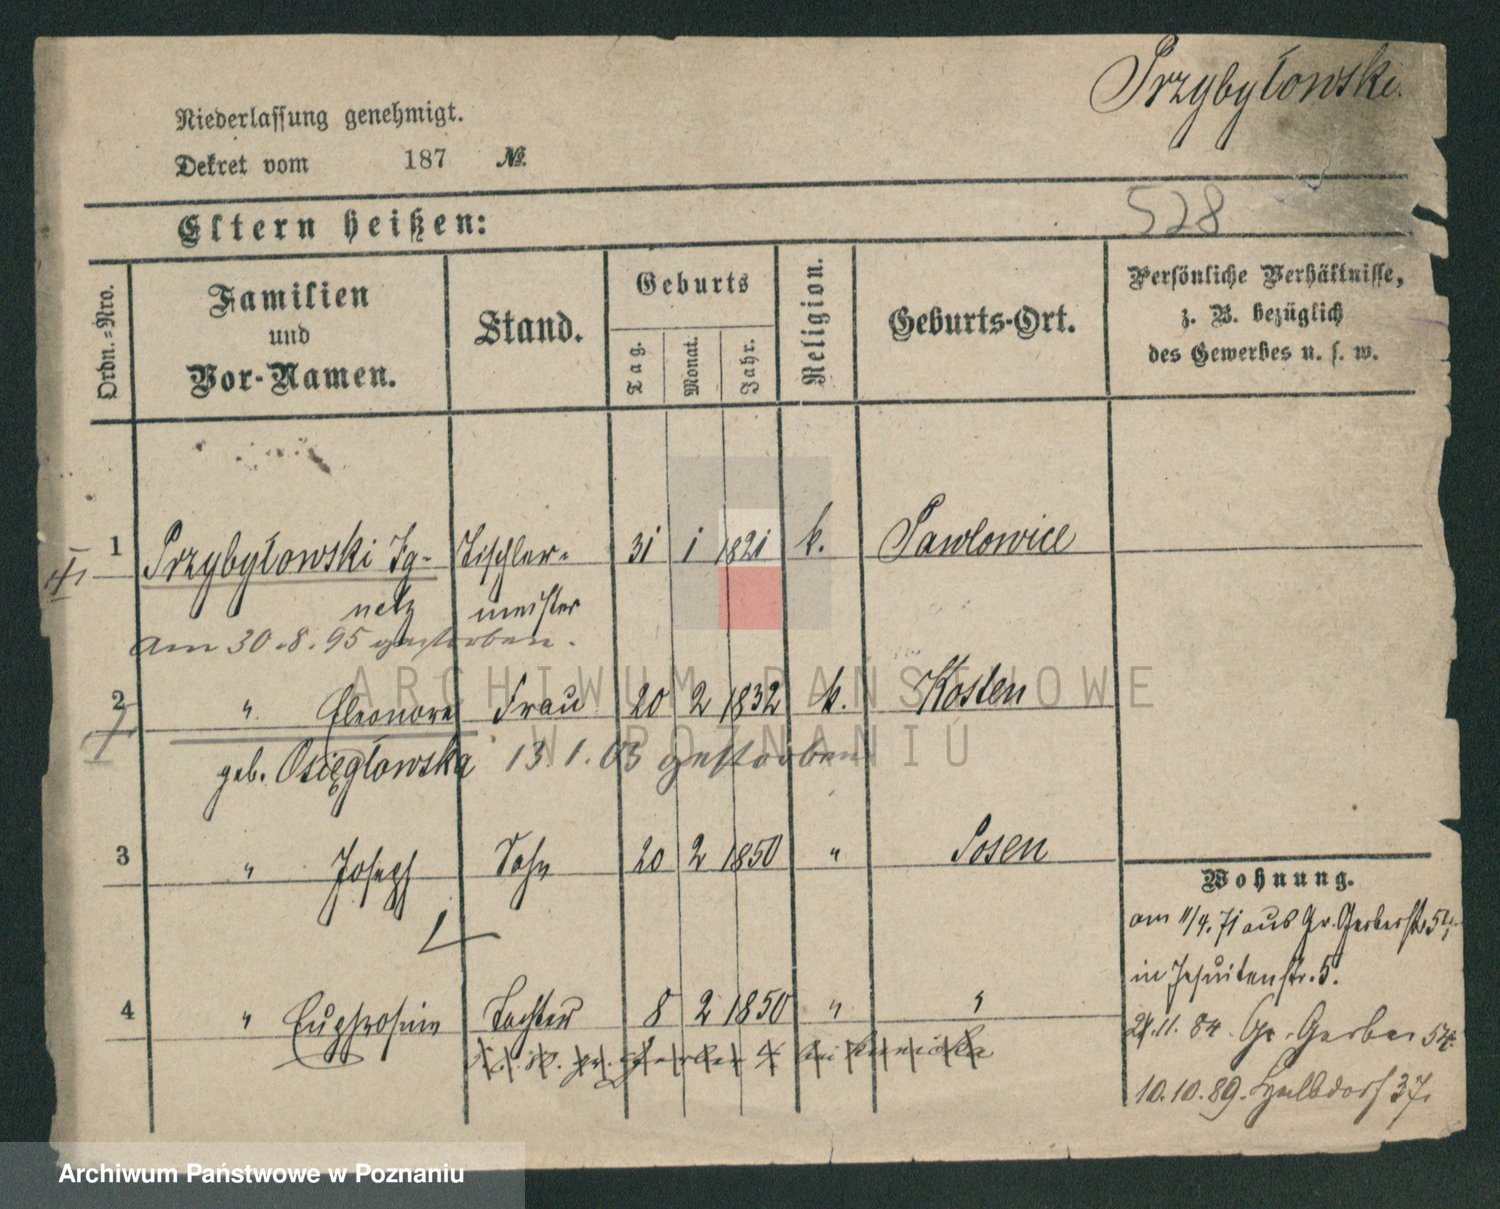 Przybyłowski.
Niederlassung genehmigt.
Dekret vom 187 №.
528
Eltern heißen:
Ordn.-Nro.
Familien
und
Vor-Namen.
Stand.
Geburts
Tag.
Monat.
Jahr.
Religion.
Geburts-Ort.
Persönliche Verhältnisse,
z. B. bezüglich
des Gewerbes u. s. w.
1 Przybyłowski Ig- Tischler- 31 1 1821 k. Pawlowice
natz meister
am 30.8.95 gestorben.
2 " Eleonore Frau 20 2 1832 k. Kosten
geb. Osięgłowska 13.1.03 gestorben
3 " Joseph Sohn 20 2 1850 " Posen
4 " Euphrosine Tochter 8 2 1850 " "
Wohnung.
am 11/4. 71 aus Gr. Gerberstr.
in Jesuitenstr. 5.
21.11. 84. Gr. Gerber 54.
10.10.89. Halbdorf 37.
ARCHIWUM PAŃSTWOWE
W POZNANIU
Archiwum Państwowe w Poznaniu